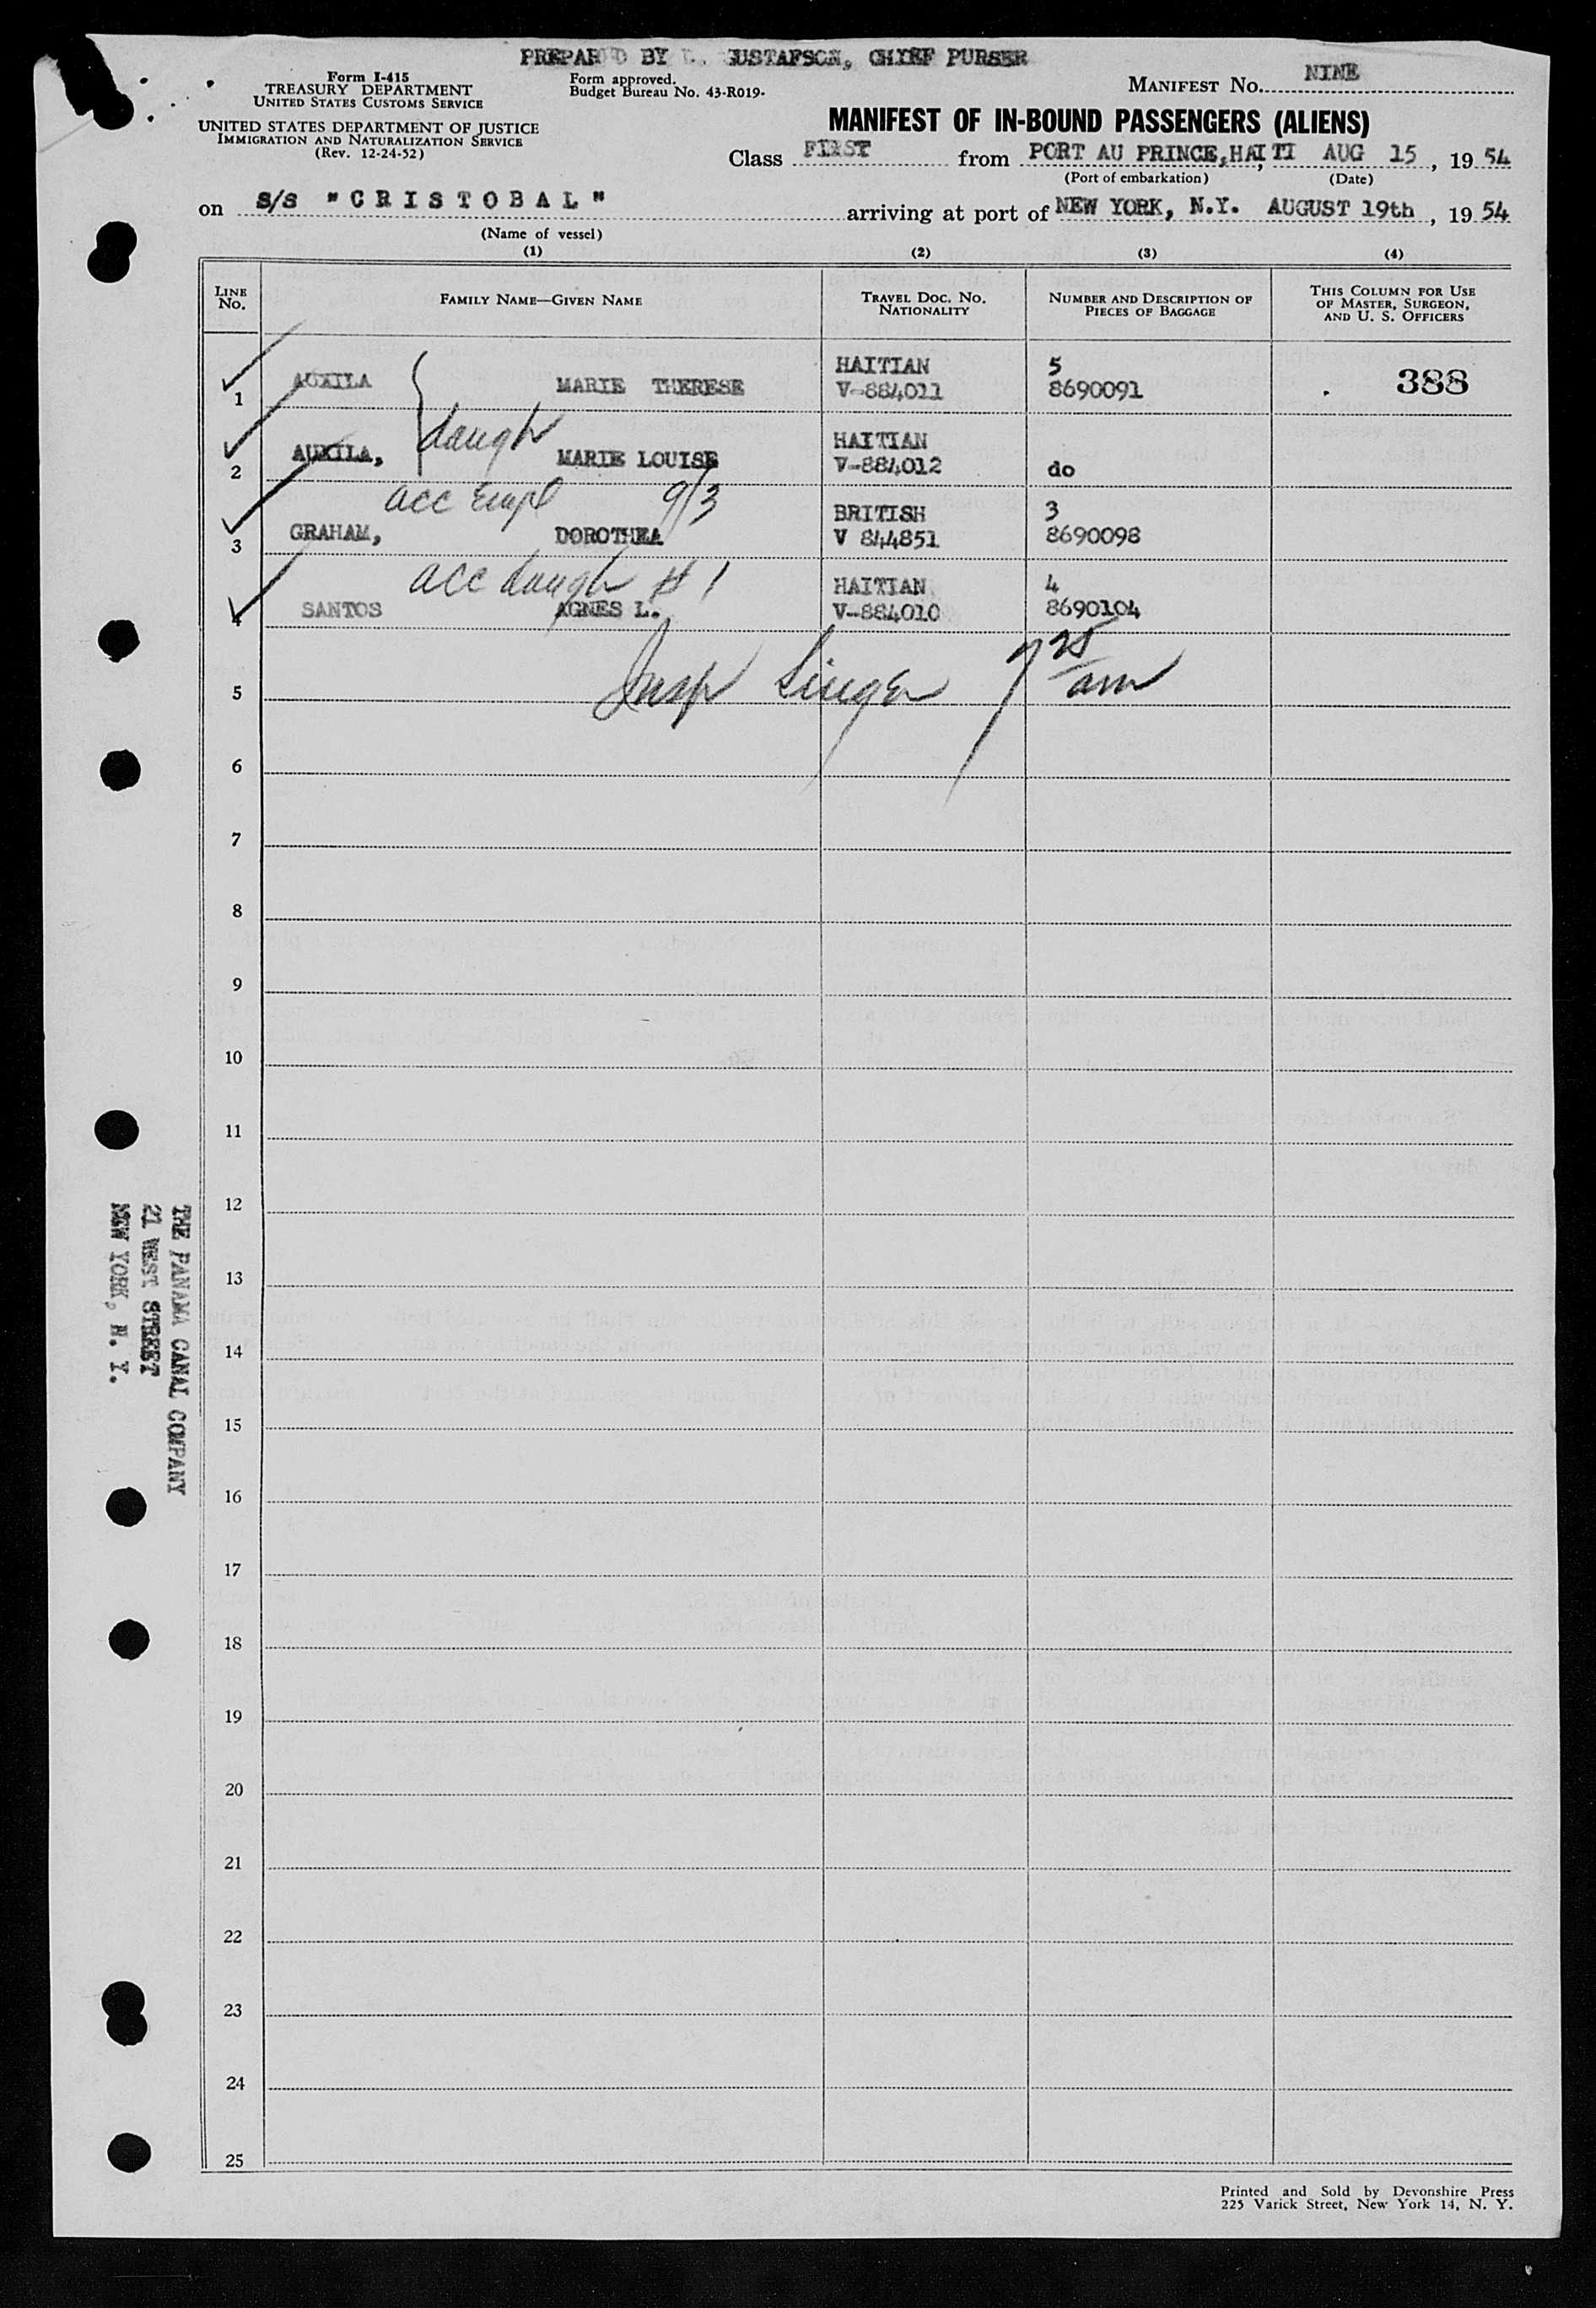 PREPARED BY GUSTAFSON, CHIEF PURSER
Form I-415
TREASURY DEPARTMENT
UNITED STATES CUSTOMS SERVICE
UNITED STATES DEPARTMENT OF JUSTICE
IMMIGRATION AND NATURALIZATION SERVICE
(Rev. 12-24-52)
Form approved.
Budget Bureau No. 43-R019-
MANIFEST No. NINE
MANIFEST OF IN-BOUND PASSENGERS (ALIENS)
Class FIRST from PORT AU PRINCE, HAITI AUG 15, 19 54
(Port of embarkation) (Date)
on S/S "CRISTOBAL" arriving at port of NEW YORK, N.Y. AUGUST 19th, 19 54
(Name of vessel)
(1) (2) (3) (4)
LINE No. FAMILY NAME—GIVEN NAME TRAVEL DOC. NO. NATIONALITY NUMBER AND DESCRIPTION OF PIECES OF BAGGAGE THIS COLUMN FOR USE OF MASTER, SURGEON, AND U. S. OFFICERS
HAITIAN 5
1 AUXILA MARIE THERESE V-884011 8690091 388
daugh
HAITIAN
2 AUXILA, MARIE LOUISE V-884012 do
acc Empl 9/3
BRITISH 3
3 GRAHAM, DOROTHEA V 844851 8690098
acc daugh # 1
HAITIAN 4
4 SANTOS AGNES L. V-884010 8690104
Insp Singer 7 25 am
5
6
7
8
9
10
11
12
13
14
15
16
17
18
19
20
21
22
23
24
25
THE PANAMA CANAL COMPANY
21 WEST STREET
NEW YORK, N. Y.
Printed and Sold by Devonshire Press
225 Varick Street, New York 14, N. Y.